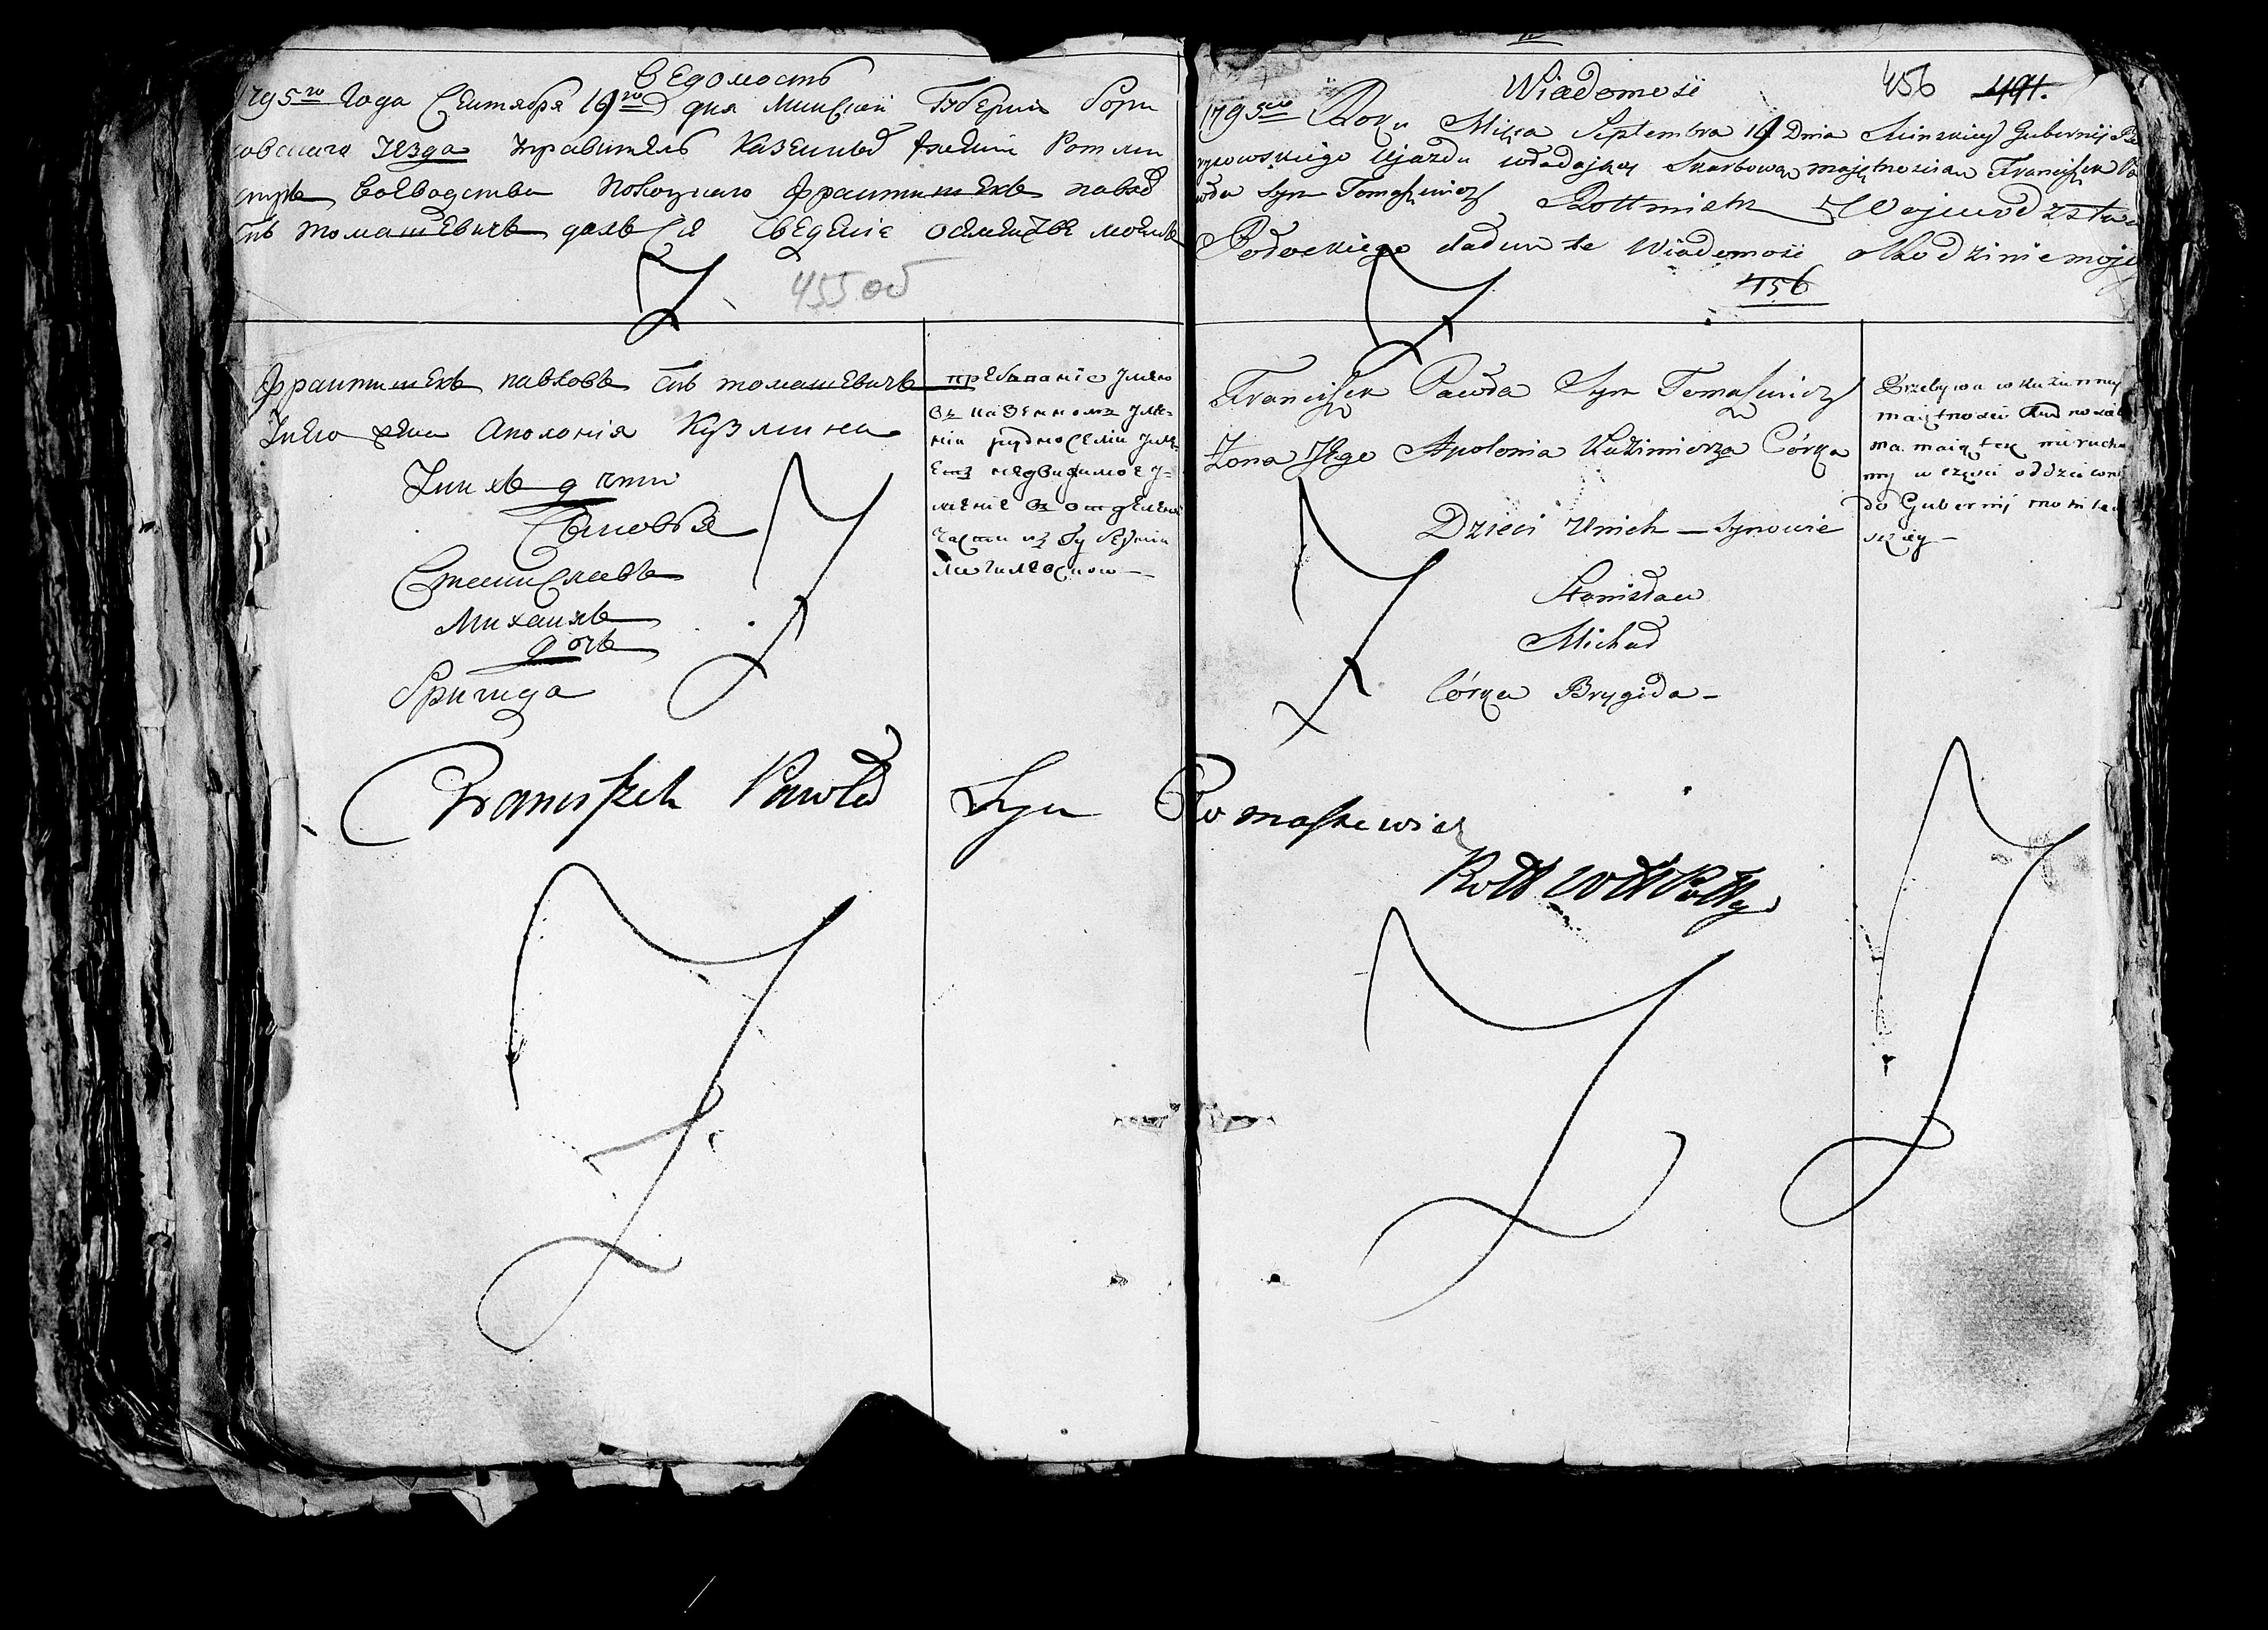 Ведомость
1795го Года Сентября 19го дня Минской Губернии Бори
совского Уезда Управитель Казенных
Воеводства Полоцкого Францишекъ павлов
сынъ томашевичъ даю Сие сведение о моей
455 об
Францишекъ павловъ сынъ томашевичъ
У него жена Аполония Кузмина
У них дети
Сыновья
Станиславъ
Михаилъ
дочь
Бригида
пребывание имею
въ казенномъ име-
нии
недвижимое и-
мение въ отделеной
части из Губернии
Могилевской
Franciszek Pawła Syn Tomaszewicz
456 491.
Wiadomość
1795go Roku Mięca Septembra 19 Dnia Minskiey Gubernij Bo
rysowskiego Ujazdu władający Skarbową majętnoscian Franciszek Pa
wła Syn Tomaszewicz Rottmistrz Wojewodztwa
Połockiego daduie te Wiadomość o Rodzinie mojej
456
Franciszek Pawła Syn Tomaszewicz
Żona Jego Apolonia Kazimierza Córka
Dzieci Unich – Synowie
Stanisław
Michał
Córka Brygida –
Przebywa w kazionney
maiętnosci
ma maiątek nieruchо
my w części oddzieloney
do Gubernij mohilew
skiey –